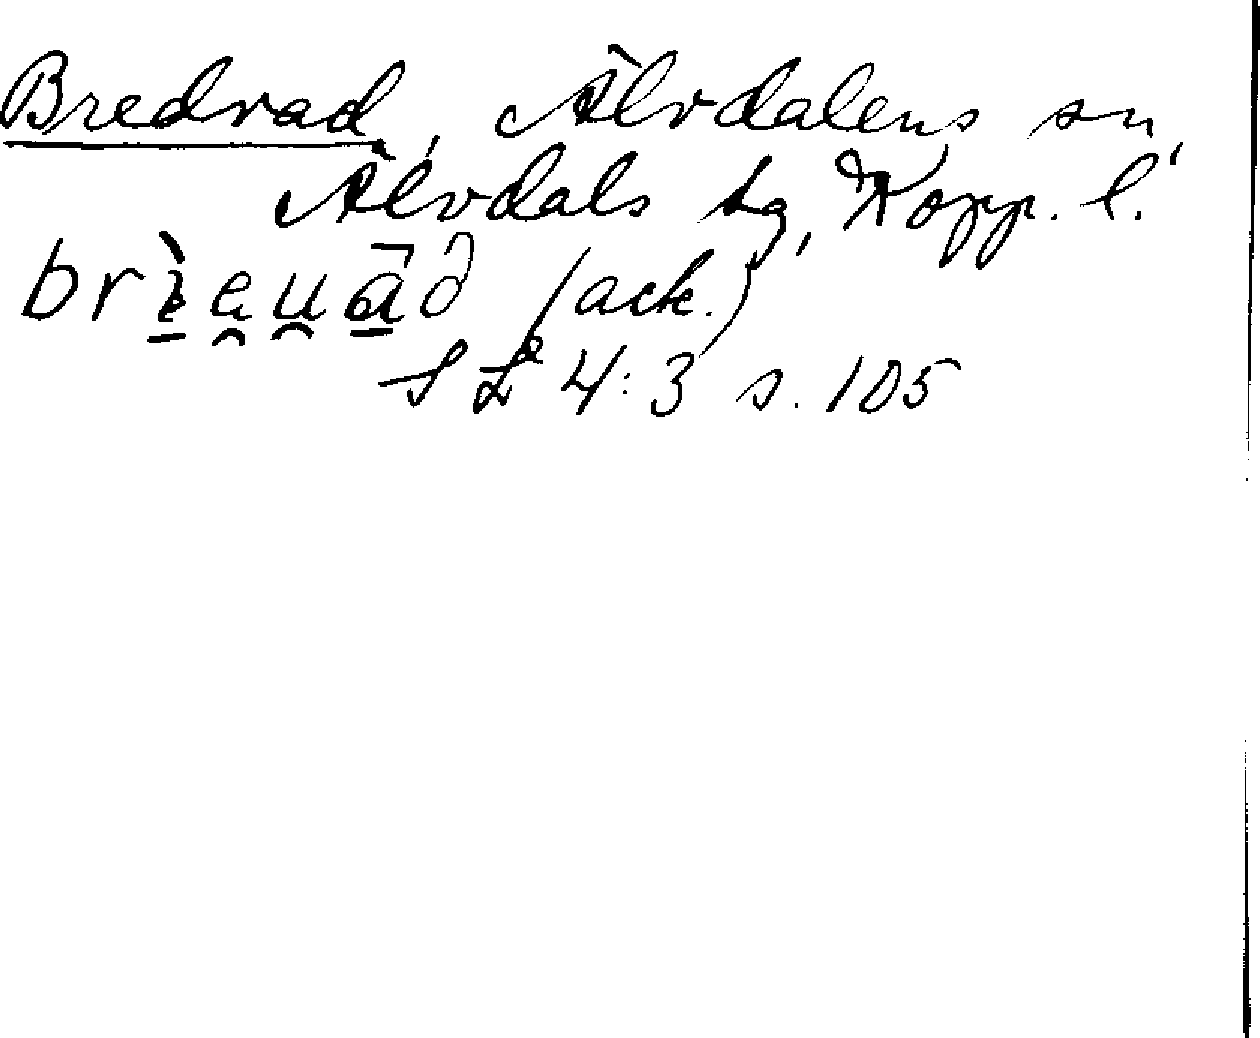 Bredvad, Älvdalens sn,
Älvdals tg, Kopp. l.
brı̱̀e̯u̯ā̱ð (ack.)
SL 4:3 s. 105